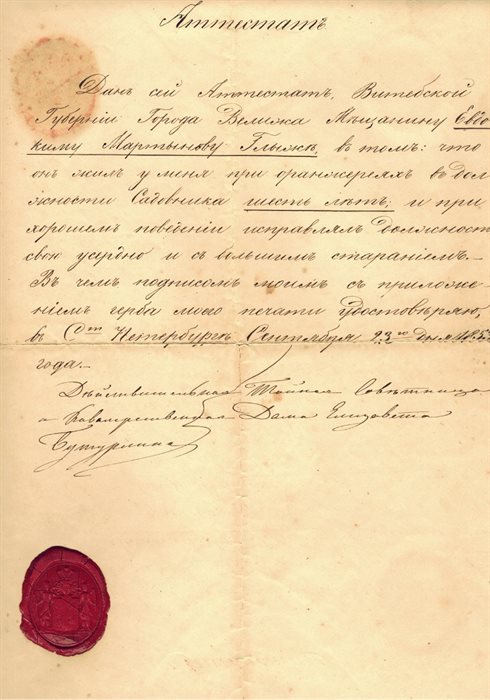 Аттестатъ
Данъ сей Аттестатъ, Витебской
Губерніи Города Велижа Мѣщанину Евдо-
киму Мартынову Глыжкѣ, въ томъ: что
онъ жилъ у меня при оранжереяхъ въ дол-
жности Садовника шесть лѣтъ; и при
хорошемъ поведеніи исправлялъ должность
свою усердно и съ большимъ стараніемъ.-
Въ чемъ подписомъ моимъ съ приложе-
ніемъ герба моего печати удостовѣряю,
въ Стъ Петербургѣ Сентября 23го дня
года.-
Дѣйствительная Тайная Совѣтница
и Кавалерственная Дама Елизавета
Бутурлина